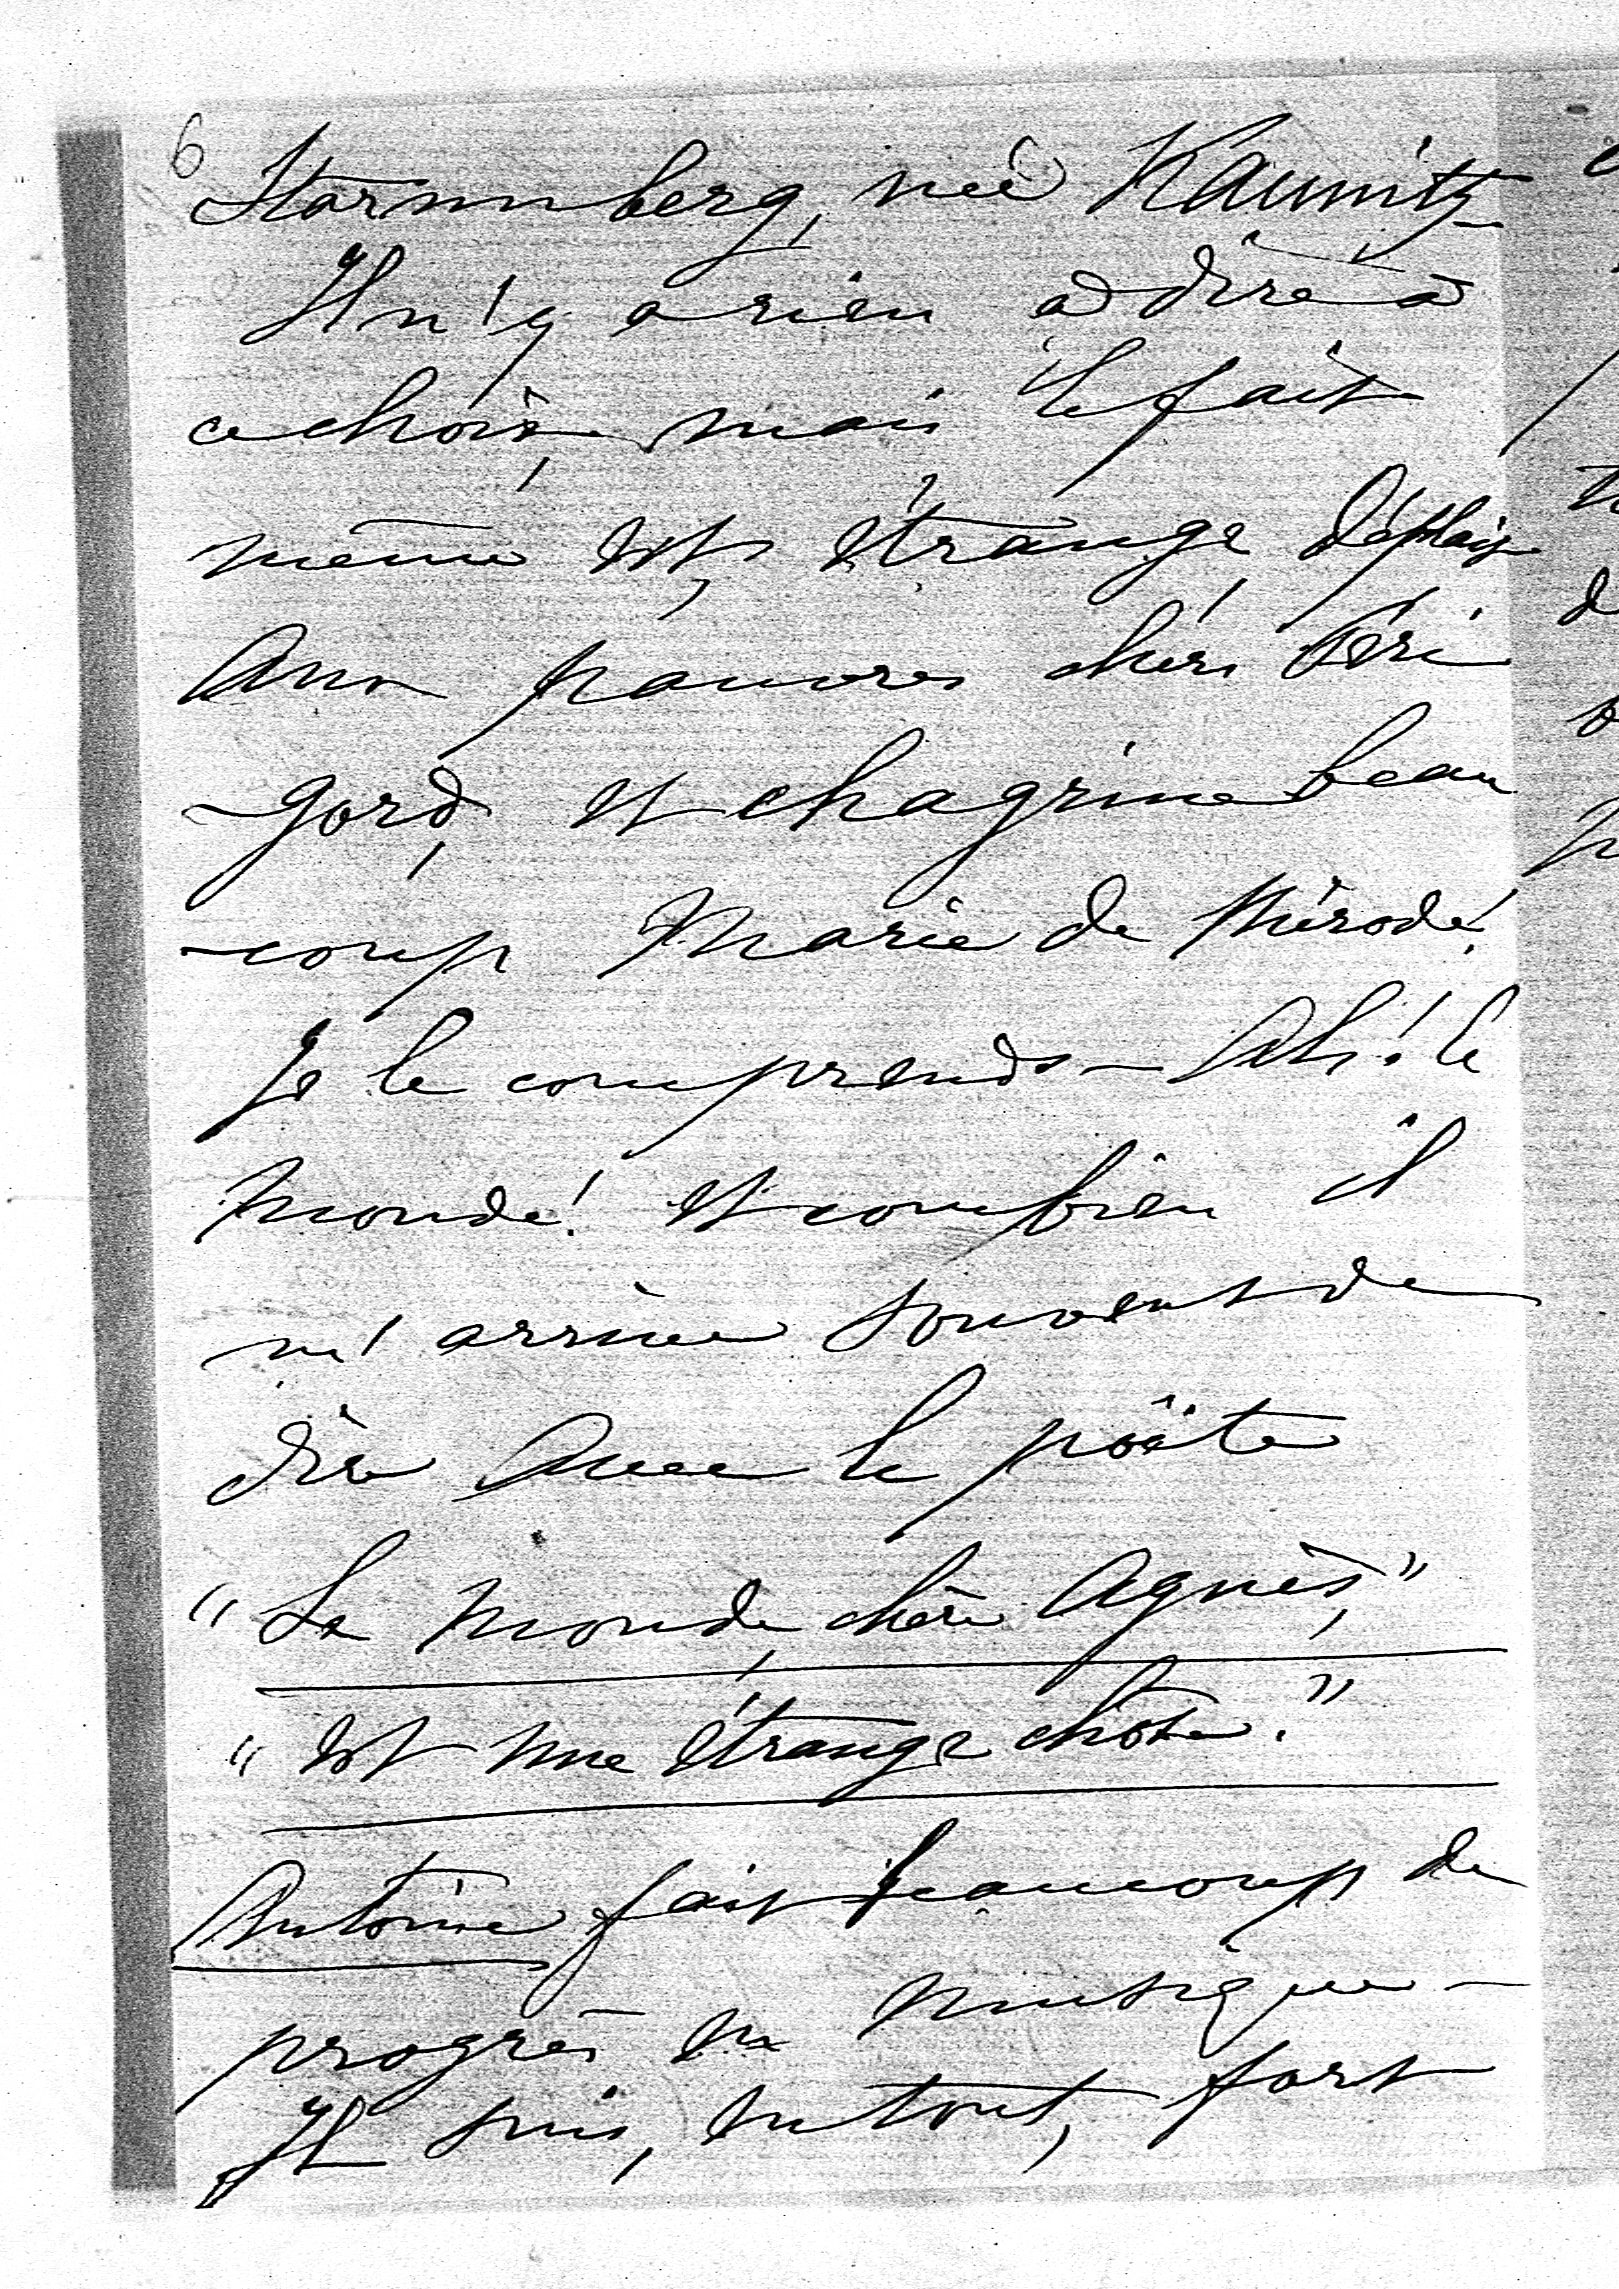 6
Starnnberg, née Kaunitz
Il n'y a rien à dire à
ce choix, mais le fait
même est étrange, déplaise
aux pauvres chers Péri
-gord, et chagrine beau
-coup Marie de Mérode!
Je le comprends - Ah! le
monde! et combien il
m'arrive souvent de
dire avec le poëte
"Le monde, chère Agnès,"
"est une étrange chose."
Antoine fait beaucoup de
progrès en musique -
Il suis, en tout, fort